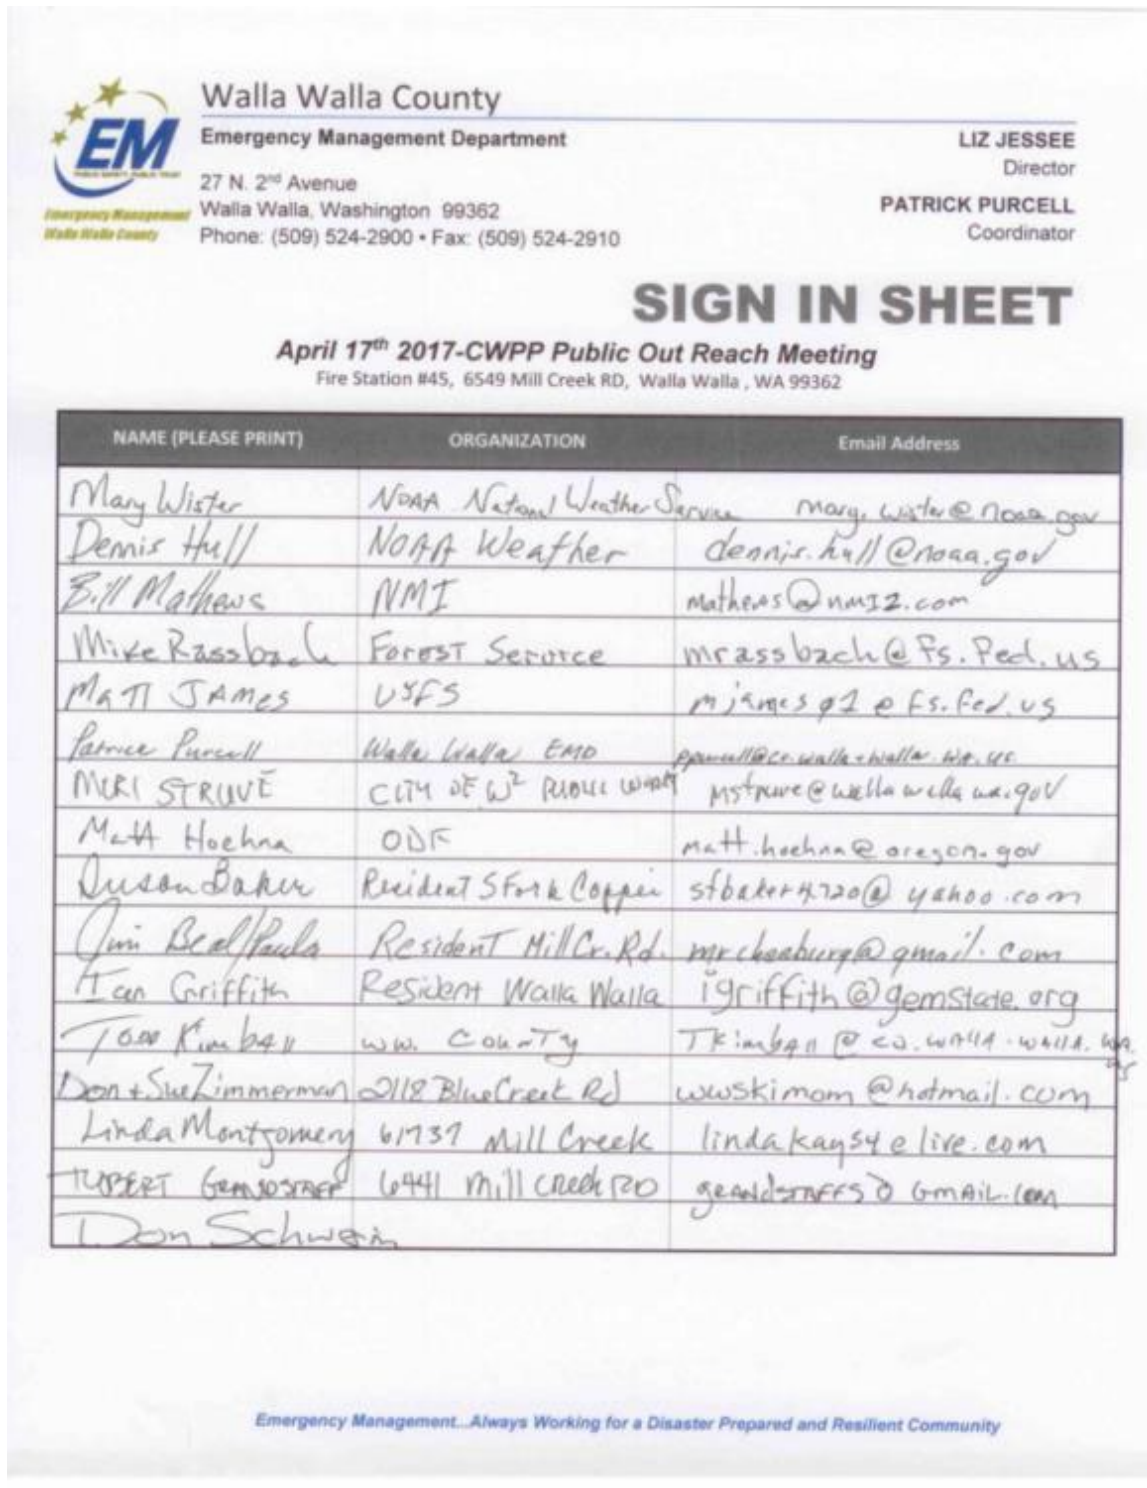 Walla Walla County
Emergency Management Department
LIZ JESSEE
Director
27 N. 2nd Avenue
Walla Walla, Washington 99362
Phone: (509) 524-2900 • Fax: (509) 524-2910
PATRICK PURCELL
Coordinator
EM
PUBLIC SAFETY, PUBLIC TRUST
Emergency Management
Walla Walla County
SIGN IN SHEET
April 17th 2017-CWPP Public Out Reach Meeting
Fire Station #45, 6549 Mill Creek RD, Walla Walla , WA 99362
NAME (PLEASE PRINT) ORGANIZATION Email Address
Mary Wister NOAA National Weather Service mary.wister@noaa.gov
Dennis Hull NOAA Weather dennis.hull@noaa.gov
Bill Mathews NMI mathews@nmi2.com
Mike Rassbach Forest Service mrassbach@fs.fed.us
MATT JAMES USFS mjames01@fs.fed.us
Purcell Walla Walla EMD ppurcell@co.walla-walla.wa.us
MERI STRUVE CITY OF W2 PUBLIC WORKS mstruve@wallawallawa.gov
Matt Hoehna ODF matt.hoehna@oregon.gov
Susan Baker Resident S Fork Coppei sfbaker4720@yahoo.com
Jim Beal/Paula Resident Mill Cr. Rd. @gmail.com
Ian Griffith Resident Walla Walla igriffith@gemstate.org
TODD Kimball WW. County TKimball@co.walla-walla.wa.us
Don + Sue Zimmerman 2118 Blue Creek Rd wwskimom@hotmail.com
Linda Montgomery 6/737 Mill Creek lindakays4@live.com
ROBERT GRANDSTAFF 6441 Mill Creek RD GRANDSTAFFS@GMAIL.COM
Don Schwein
Emergency Management...Always Working for a Disaster Prepared and Resilient Community